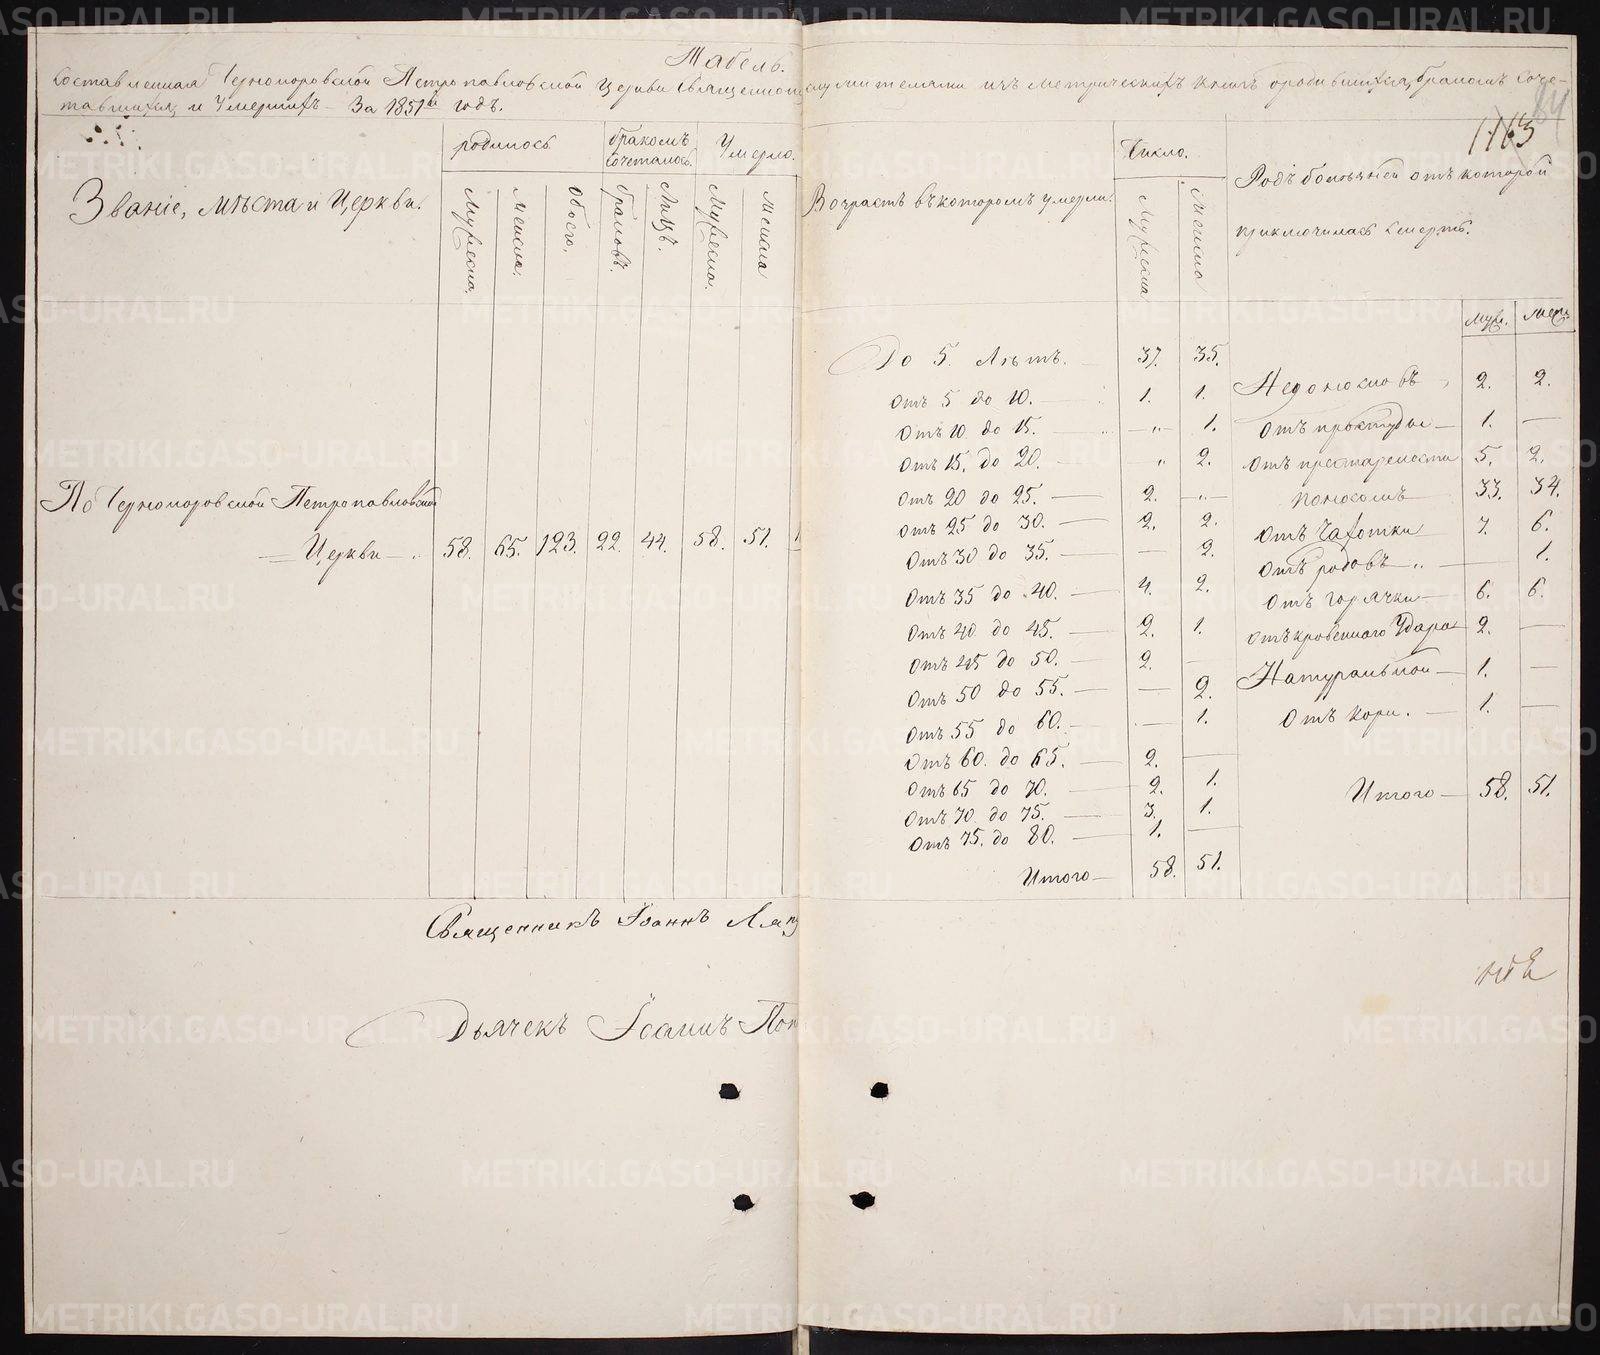 Табель.
составленная Черноноровской Петропавловской Церкви Священнослужителями изъ метрическихъ книгъ о родившихся, бракомъ соче-
тавшихся, и Умершихъ За 1851й годъ.
84
1163
Званіе, мѣста и Церкви.
родилось
бракомъ сочеталось
Умерло.
Мужеска.
Женска.
Обоего.
браковъ.
Лицъ.
Мужеска.
Женска
По Черноноровской Петропавловской
Церкви 58. 65. 123. 22. 44. 58. 51.
Священникъ Іоаннъ
Дьячекъ Іоаннъ
Возрастъ въ которомъ умерли.
Число.
Мужеска
Женска
Родъ болѣзней отъ которой
приключилась смерть.
Муж. Жен.
До 5 Лѣтъ. 37. 35.
Отъ 5 до 10. 1. 1.
Отъ 10 до 15. — „ — 1.
Отъ 15. до 20. „ 2.
Отъ 20 до 25. — 2. — „ —
Отъ 25 до 30. — 2. 2.
Отъ 30 до 35. — — 2.
Отъ 35 до 40. — 4. 2.
Отъ 40 до 45. — 2. 1.
Отъ 45 до 50. — 2. —
Отъ 50 до 55. — — 2.
Отъ 55 до 60. — — 1.
Отъ 60. до 65. — 2. —
Отъ 65 до 70. — 2. 1.
Отъ 70 до 75. — 3. 1.
Отъ 75. до 80. — 1. —
Итого — 58. 51.
Недоносковъ 2. 2.
Отъ простуды — 1. —
Отъ престарелости 5. 2.
Поносомъ 33. 34.
Отъ Чахотки 7. 6.
Отъ родовъ — „ — 1.
Отъ горячки — 6. 6.
Отъ кровеннаго Удара 2. —
Натуральной — 1. —
Отъ кори. — 1. —
Итого — 58. 51.
METRIKI.GASO-URAL.RU